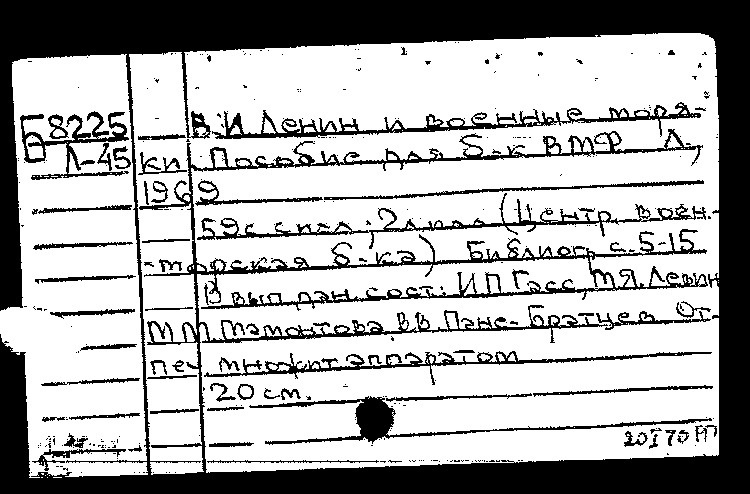 Б8225 В.И Ленин и военные моря-
Л-45 ки. Пособие для б-к ВМФ Л.,
1969
59с с илл; 2л илл (Центр. воен.-
-морская б-ка) Библиогр с. 5-15
В вып дан. сост: И.П Гасс, М.Я. Левин
М М. Мамонтова, В.В. Панс-Братцев От-
печ множит аппаратом
20 см.
20 I 70